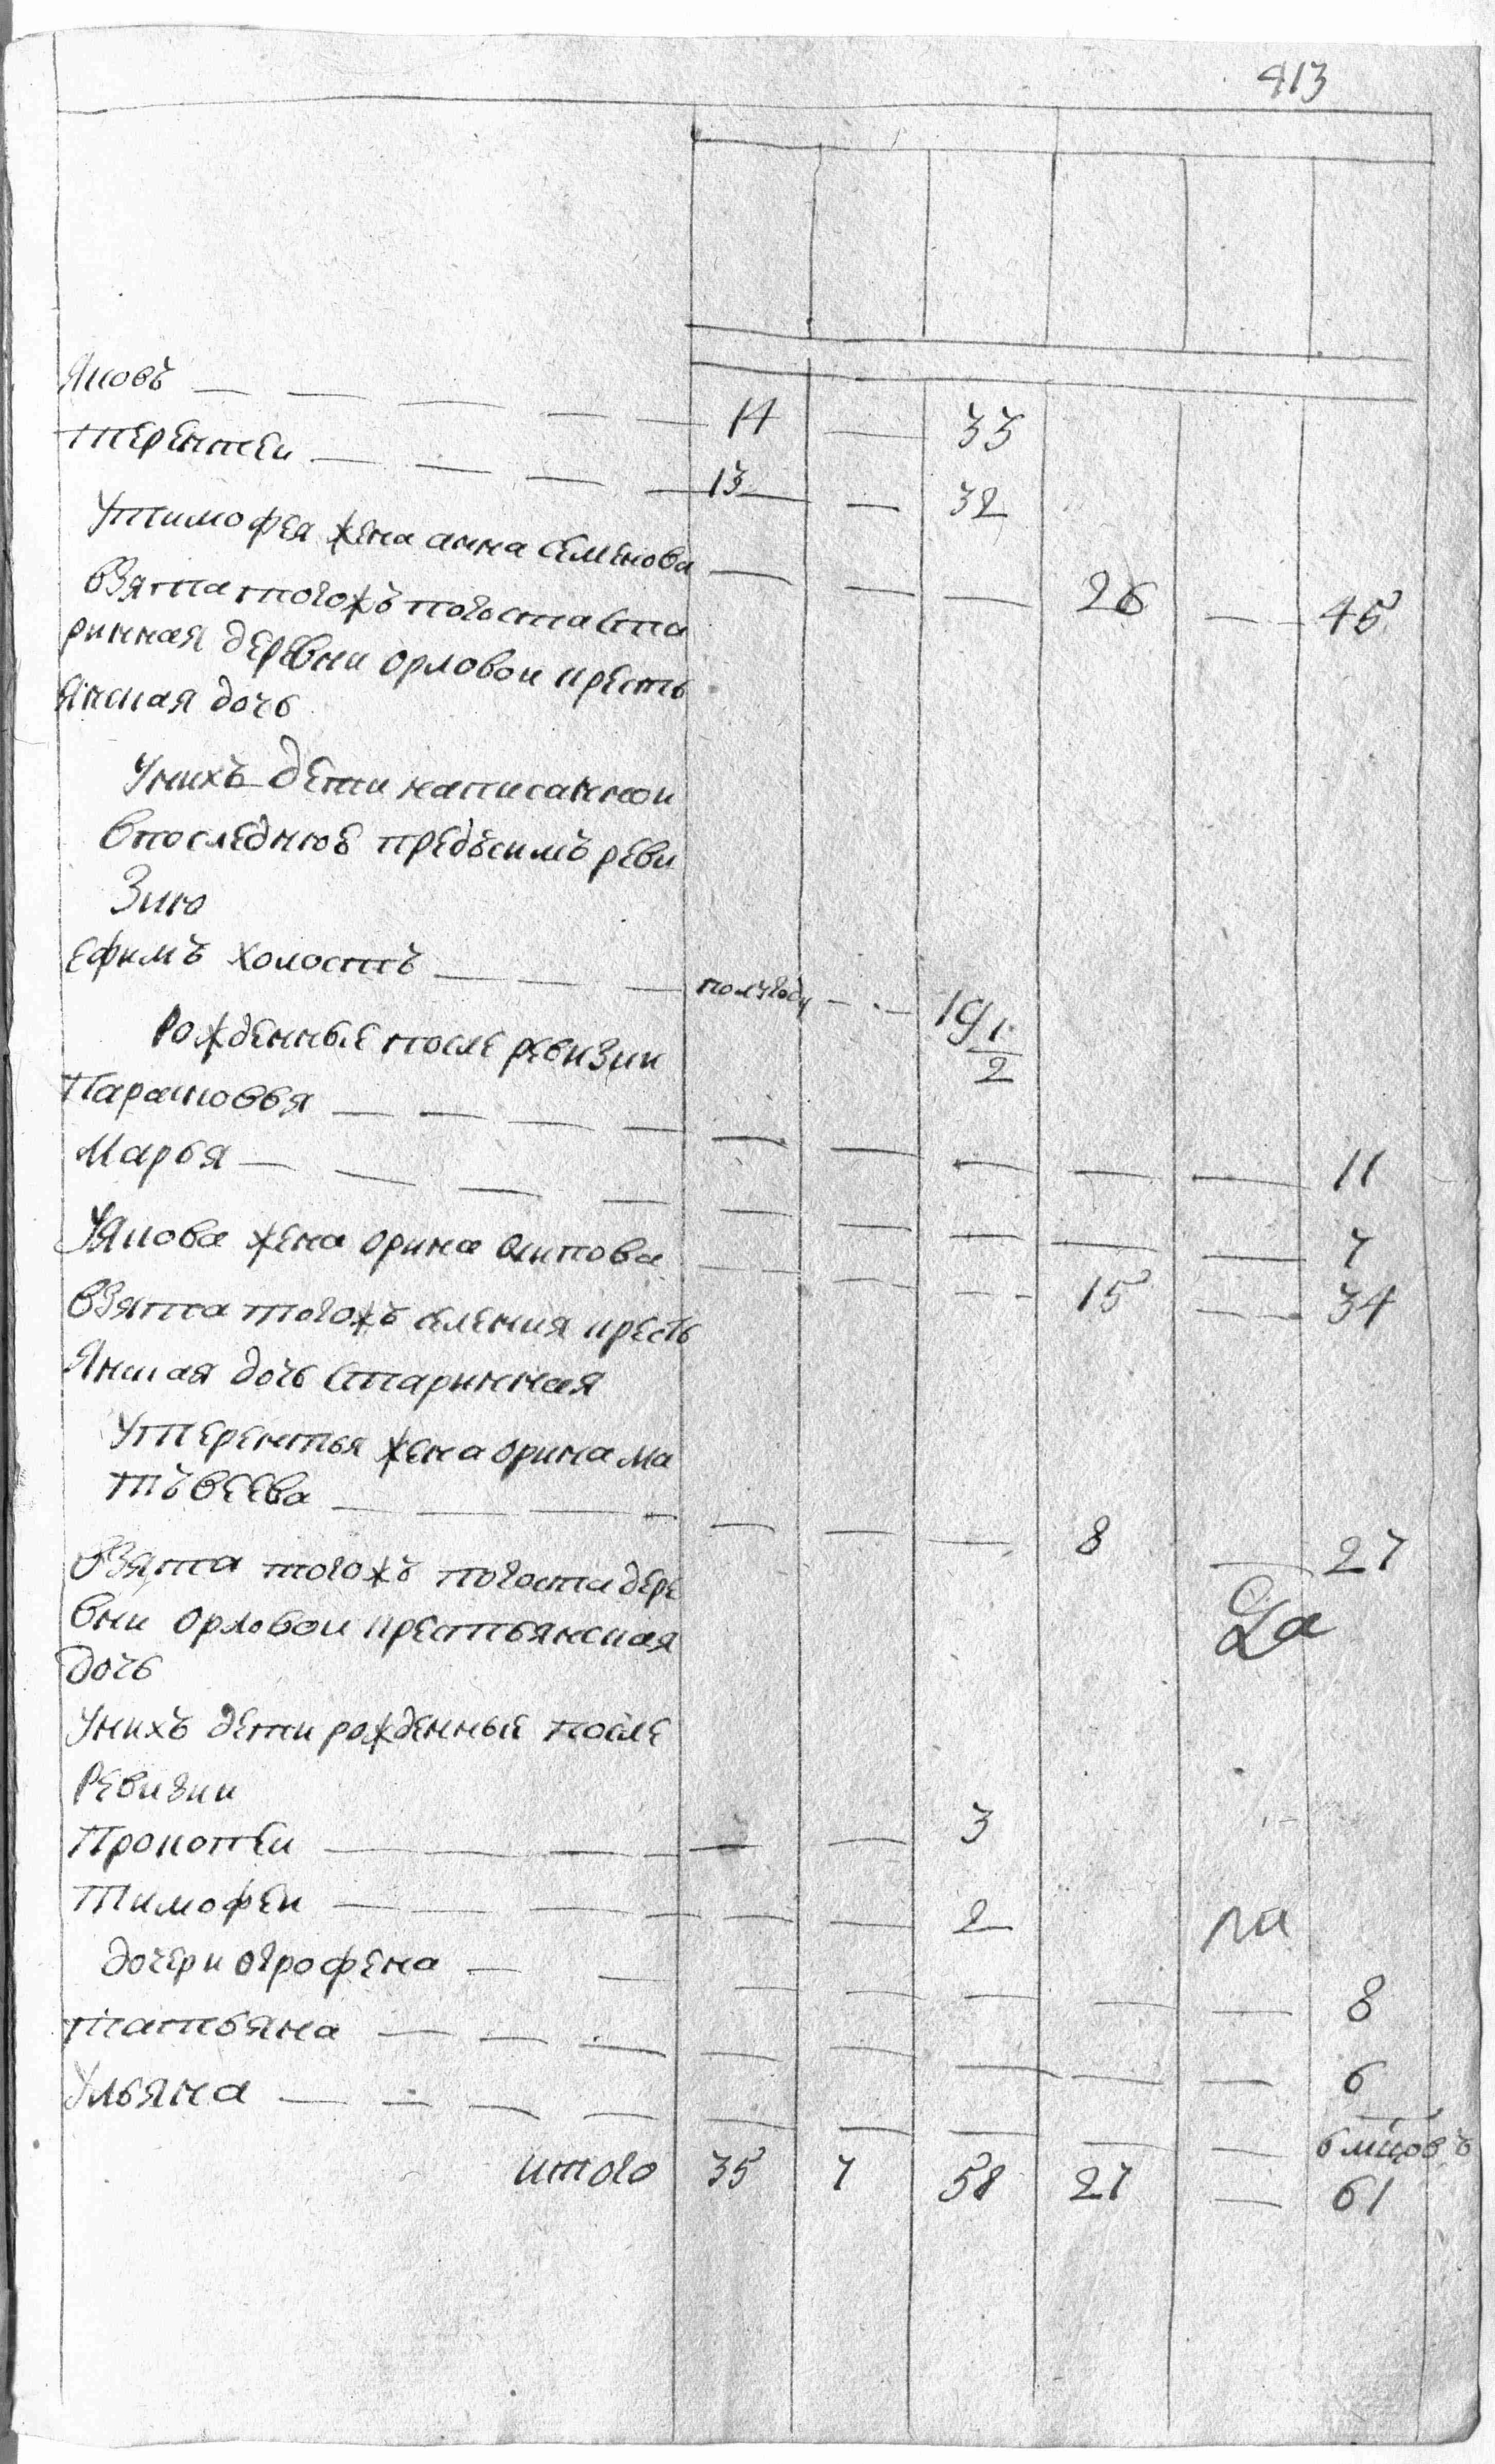 413
Яковъ — — — — — 14 — 33
терентеи — — — — 13 — — 32
Утимофея жена анна семенова — — — 26 — — 45
взята тогожъ погоста ста
ринная деревни орловои кресть
янская дочь
Унихъ дети написаннои
впоследнюю предъсимъ реви
зию
ефимъ холостъ — — — полугоду — — 19 1/2
рожденные после ревизии
Парасковья — — — — — — — — — 11
Марья — — — — — — — — — 7
Уякова жена орина осипова — — — 15 — 34
взята тогожъ селения кресть
янская дочь старинная
Утерентья жена орина ма
тъвеева — — — — — — 8 — 27
взята тогожъ погоста дере
вни орловои крестьянская
дочь
Унихъ дети рожденные после
ревизии
Прокопеи — — — — — — 3
Тимофеи — — — — — — 2
на
дочери огрофена — — — — — — — 8
татьяна — — — — — — — — — 6
Ульяна — — — — — — — — — 6 мцовъ
итого 35 7 58 27 — 61